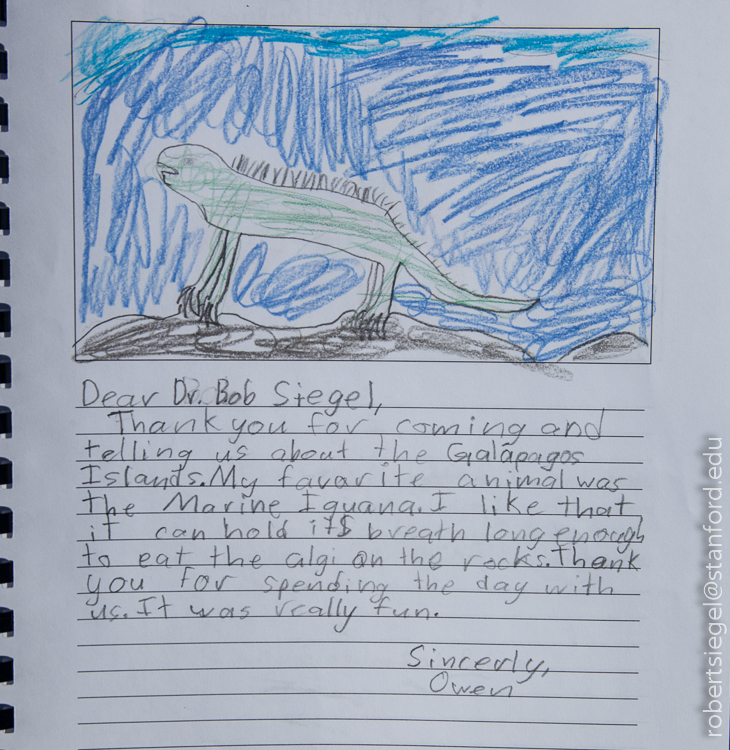 Dear Dr. Bob Siegel,
Thank you for coming and
telling us about the Galápagos
Islands. My favarite animal was
the Marine Iguana. I like that
it can hold its breath long enough
to eat the algi on the rocks. Thank
you for spending the day with
us. It was really fun.
Sincerly,
Owen
robertsiegel@stanford.edu